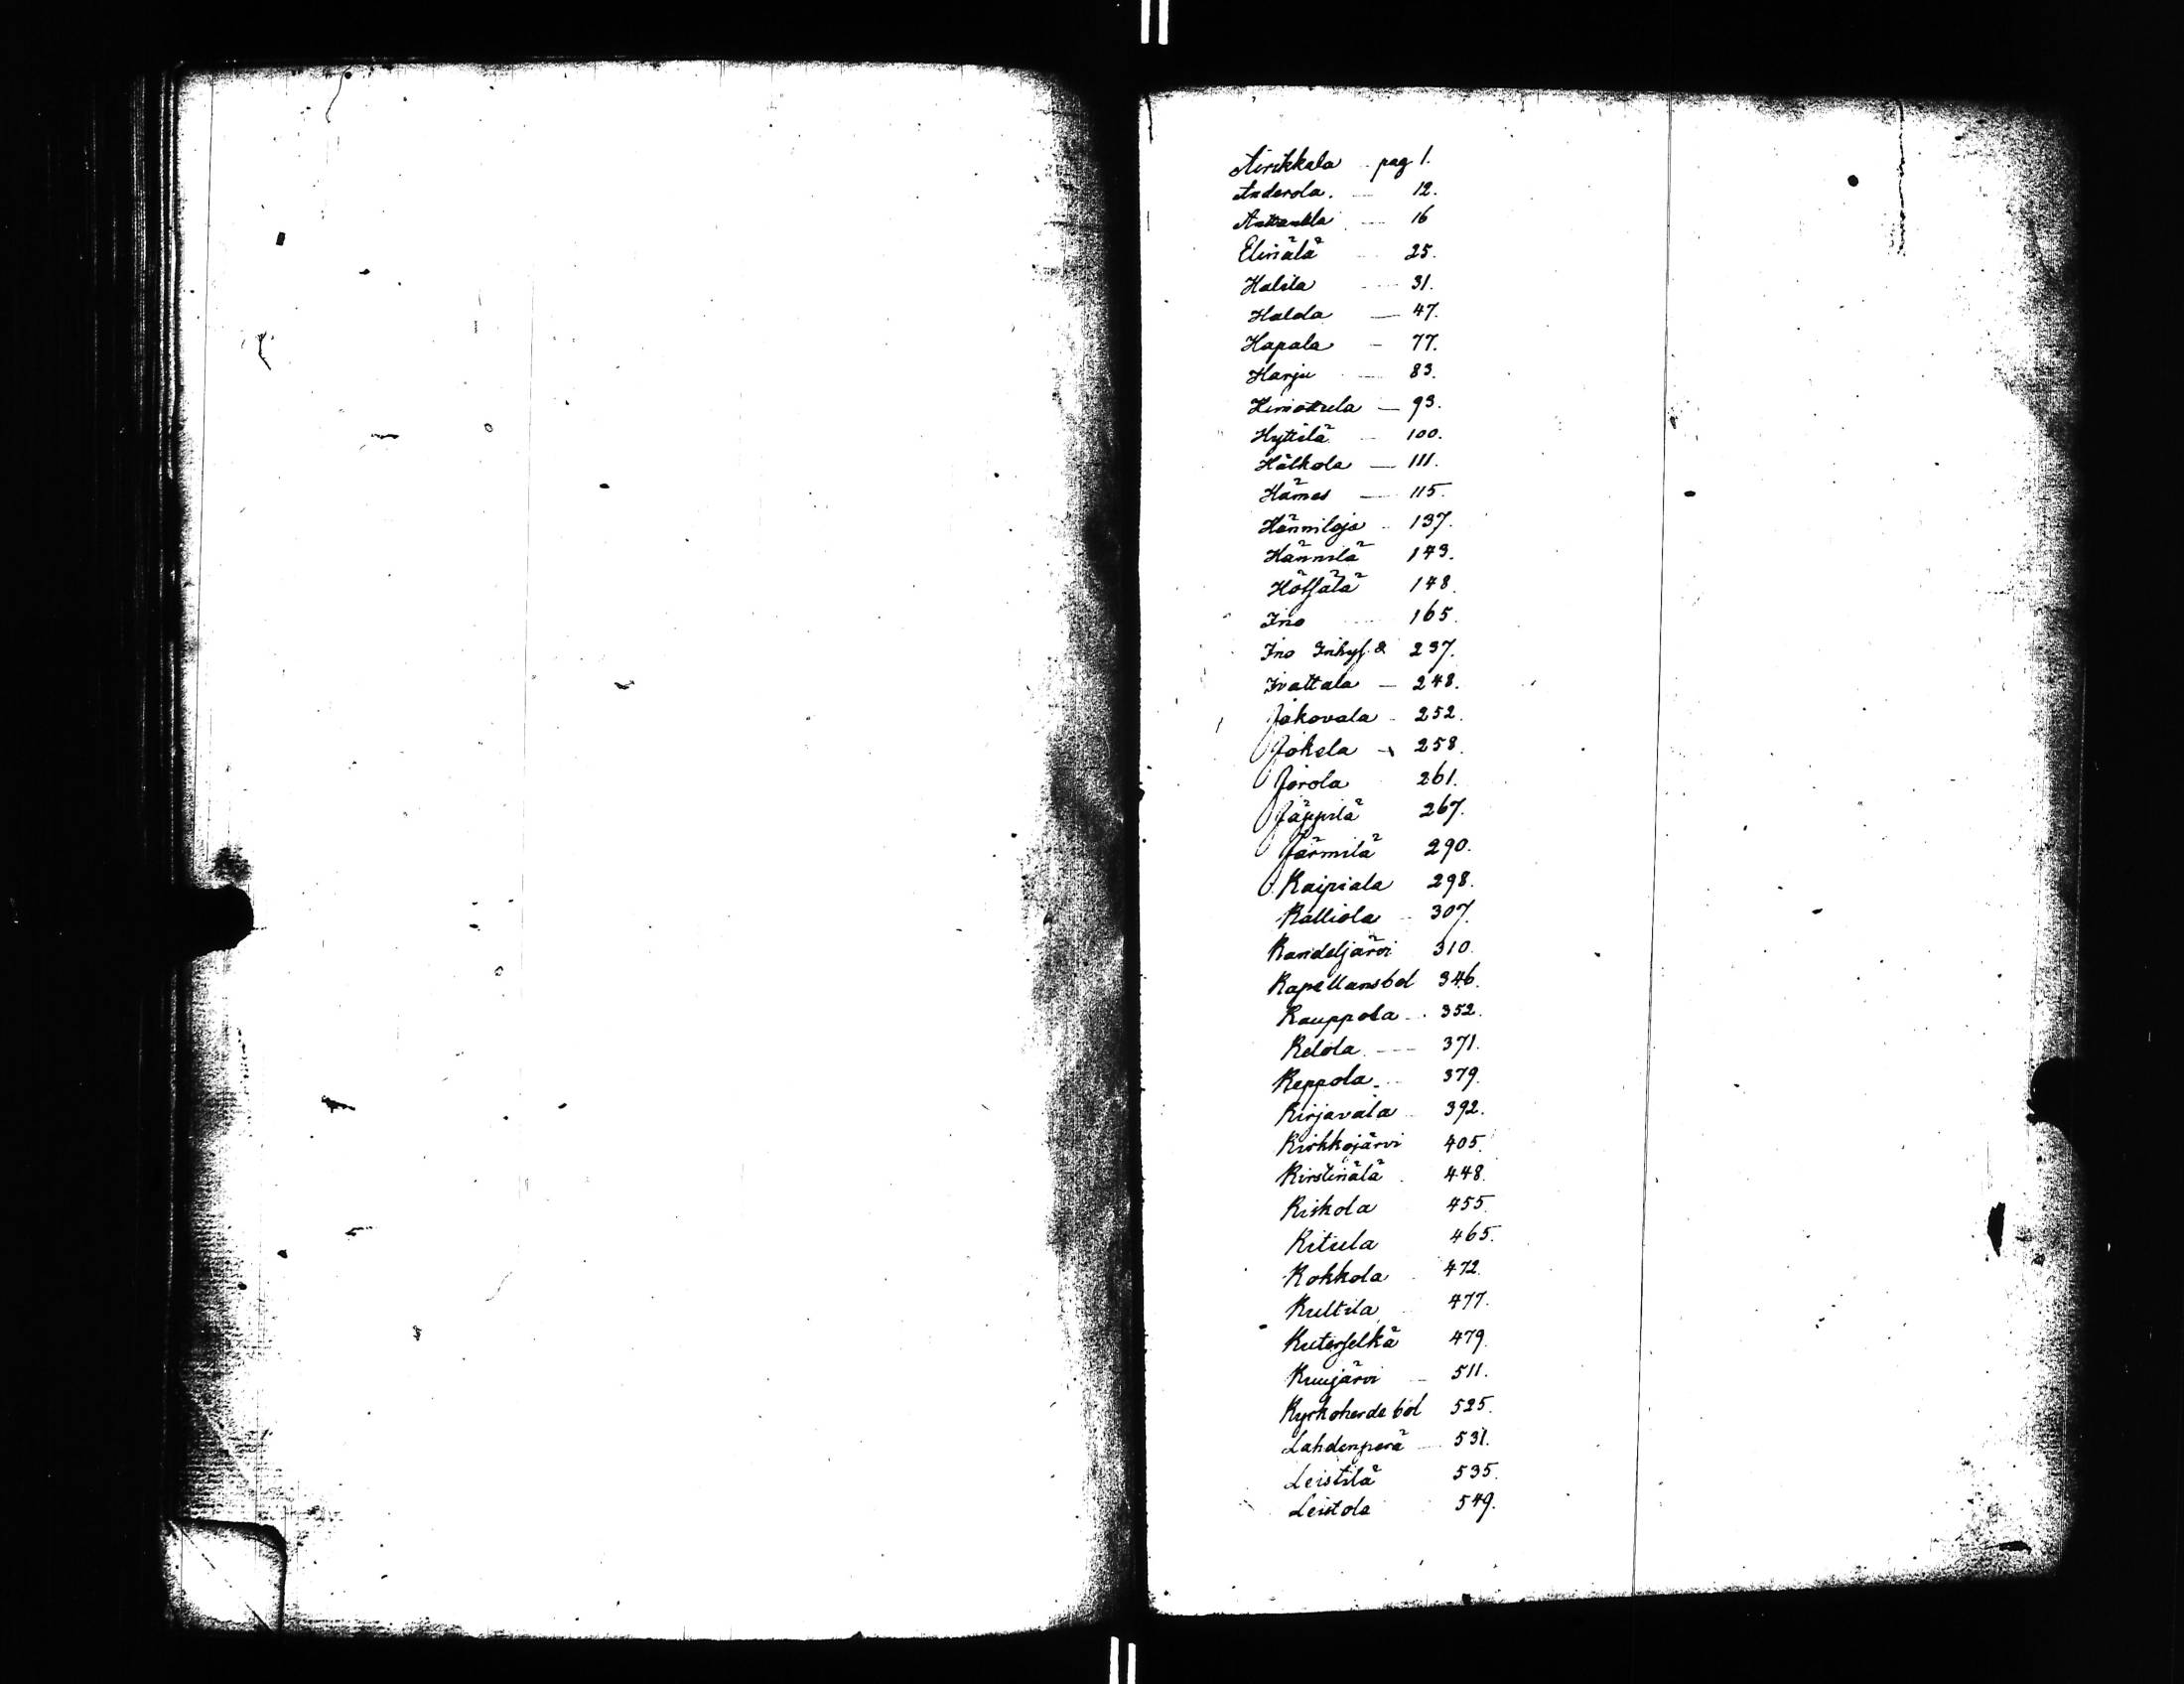 Airikkala pag 1.
Anderola. — 12.
Anttanala — 16
Elinälä — 25.
Halila — 31.
Halola — 47.
Hapala — 77.
Harju — 83.
Himottula — 93.
Hytielä — 100.
Hälkölä — 111.
Hämes — 115.
Hänniloja — 137.
Hännilä 143.
Hötsälä 148.
Ino — 165.
Ino Inhys. & 237.
Ivattala — 248.
Jakovala — 252.
Jokela — 258.
Jorola 261.
Jäppilä 267.
Järmilä 290.
Kaipiala 298.
Kalliola — 307.
Kandeljärvi 310.
Kapellansbol 346.
Kauppola — 352.
Kelola — 371.
Keppola — 379.
Kirjavala — 392.
Kirkkojärvi 405.
Kirstinälä 448.
Kiskola 455.
Kitula 465.
Kokkola 472.
Kultila 477.
Kuterselkä 479.
Kuujärvi — 511.
Kyrkoherdebol 525.
Lahdenperä — 531.
Leistilä 535.
Leistola 549.